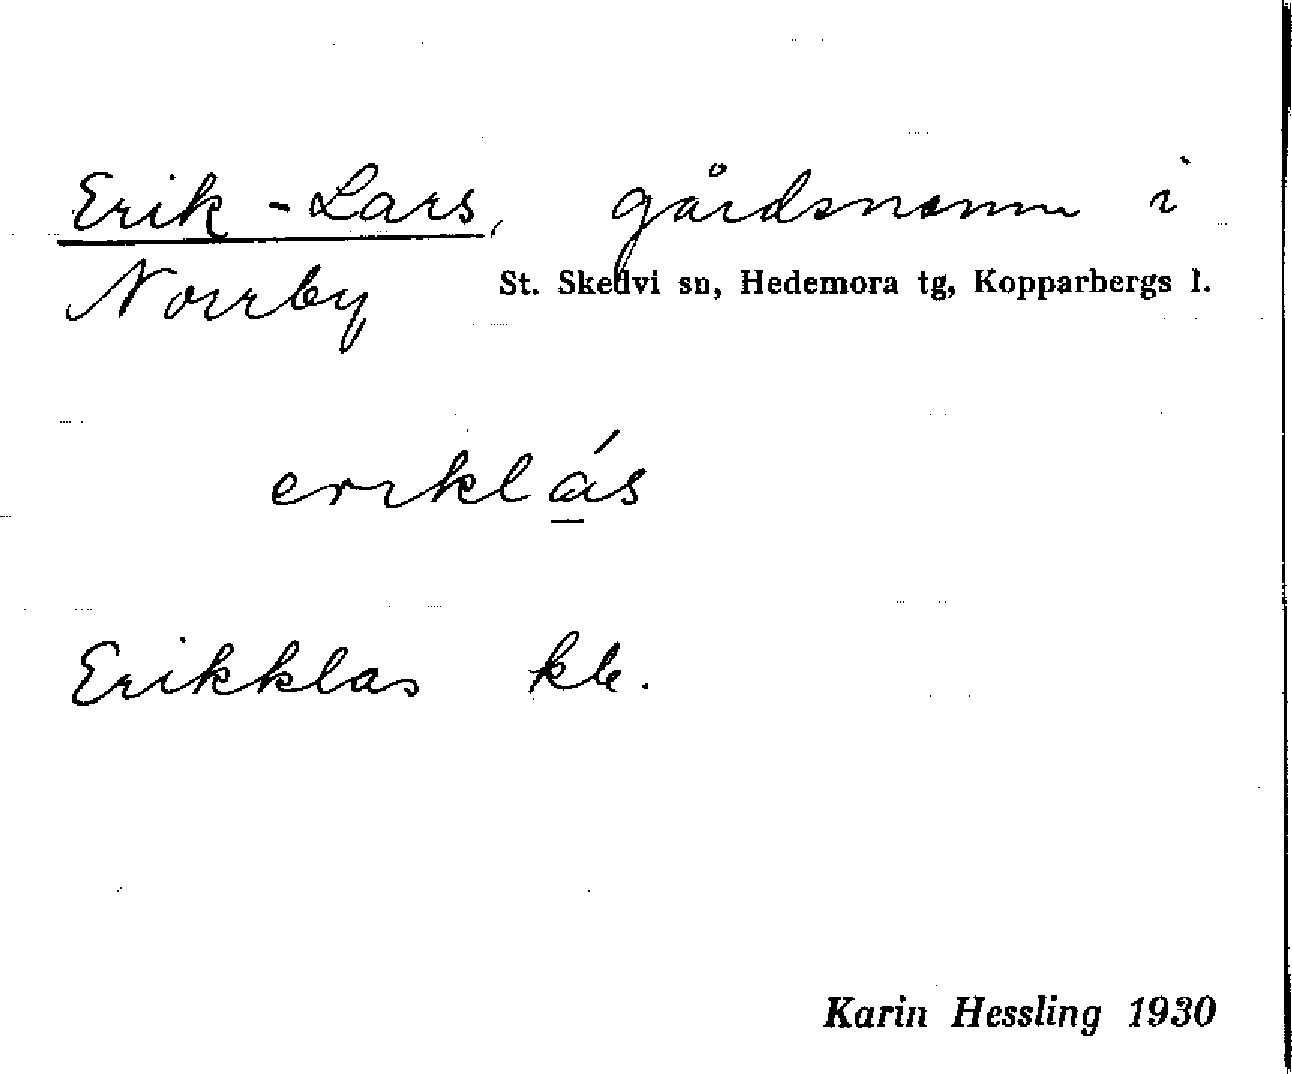 Erik-Lars, gårdsnamn i
Norrby St. Skedvi sn, Hedemora tg, Kopparbergs l.
eriklás
Erikklas kb.
Karin Hessling 1930